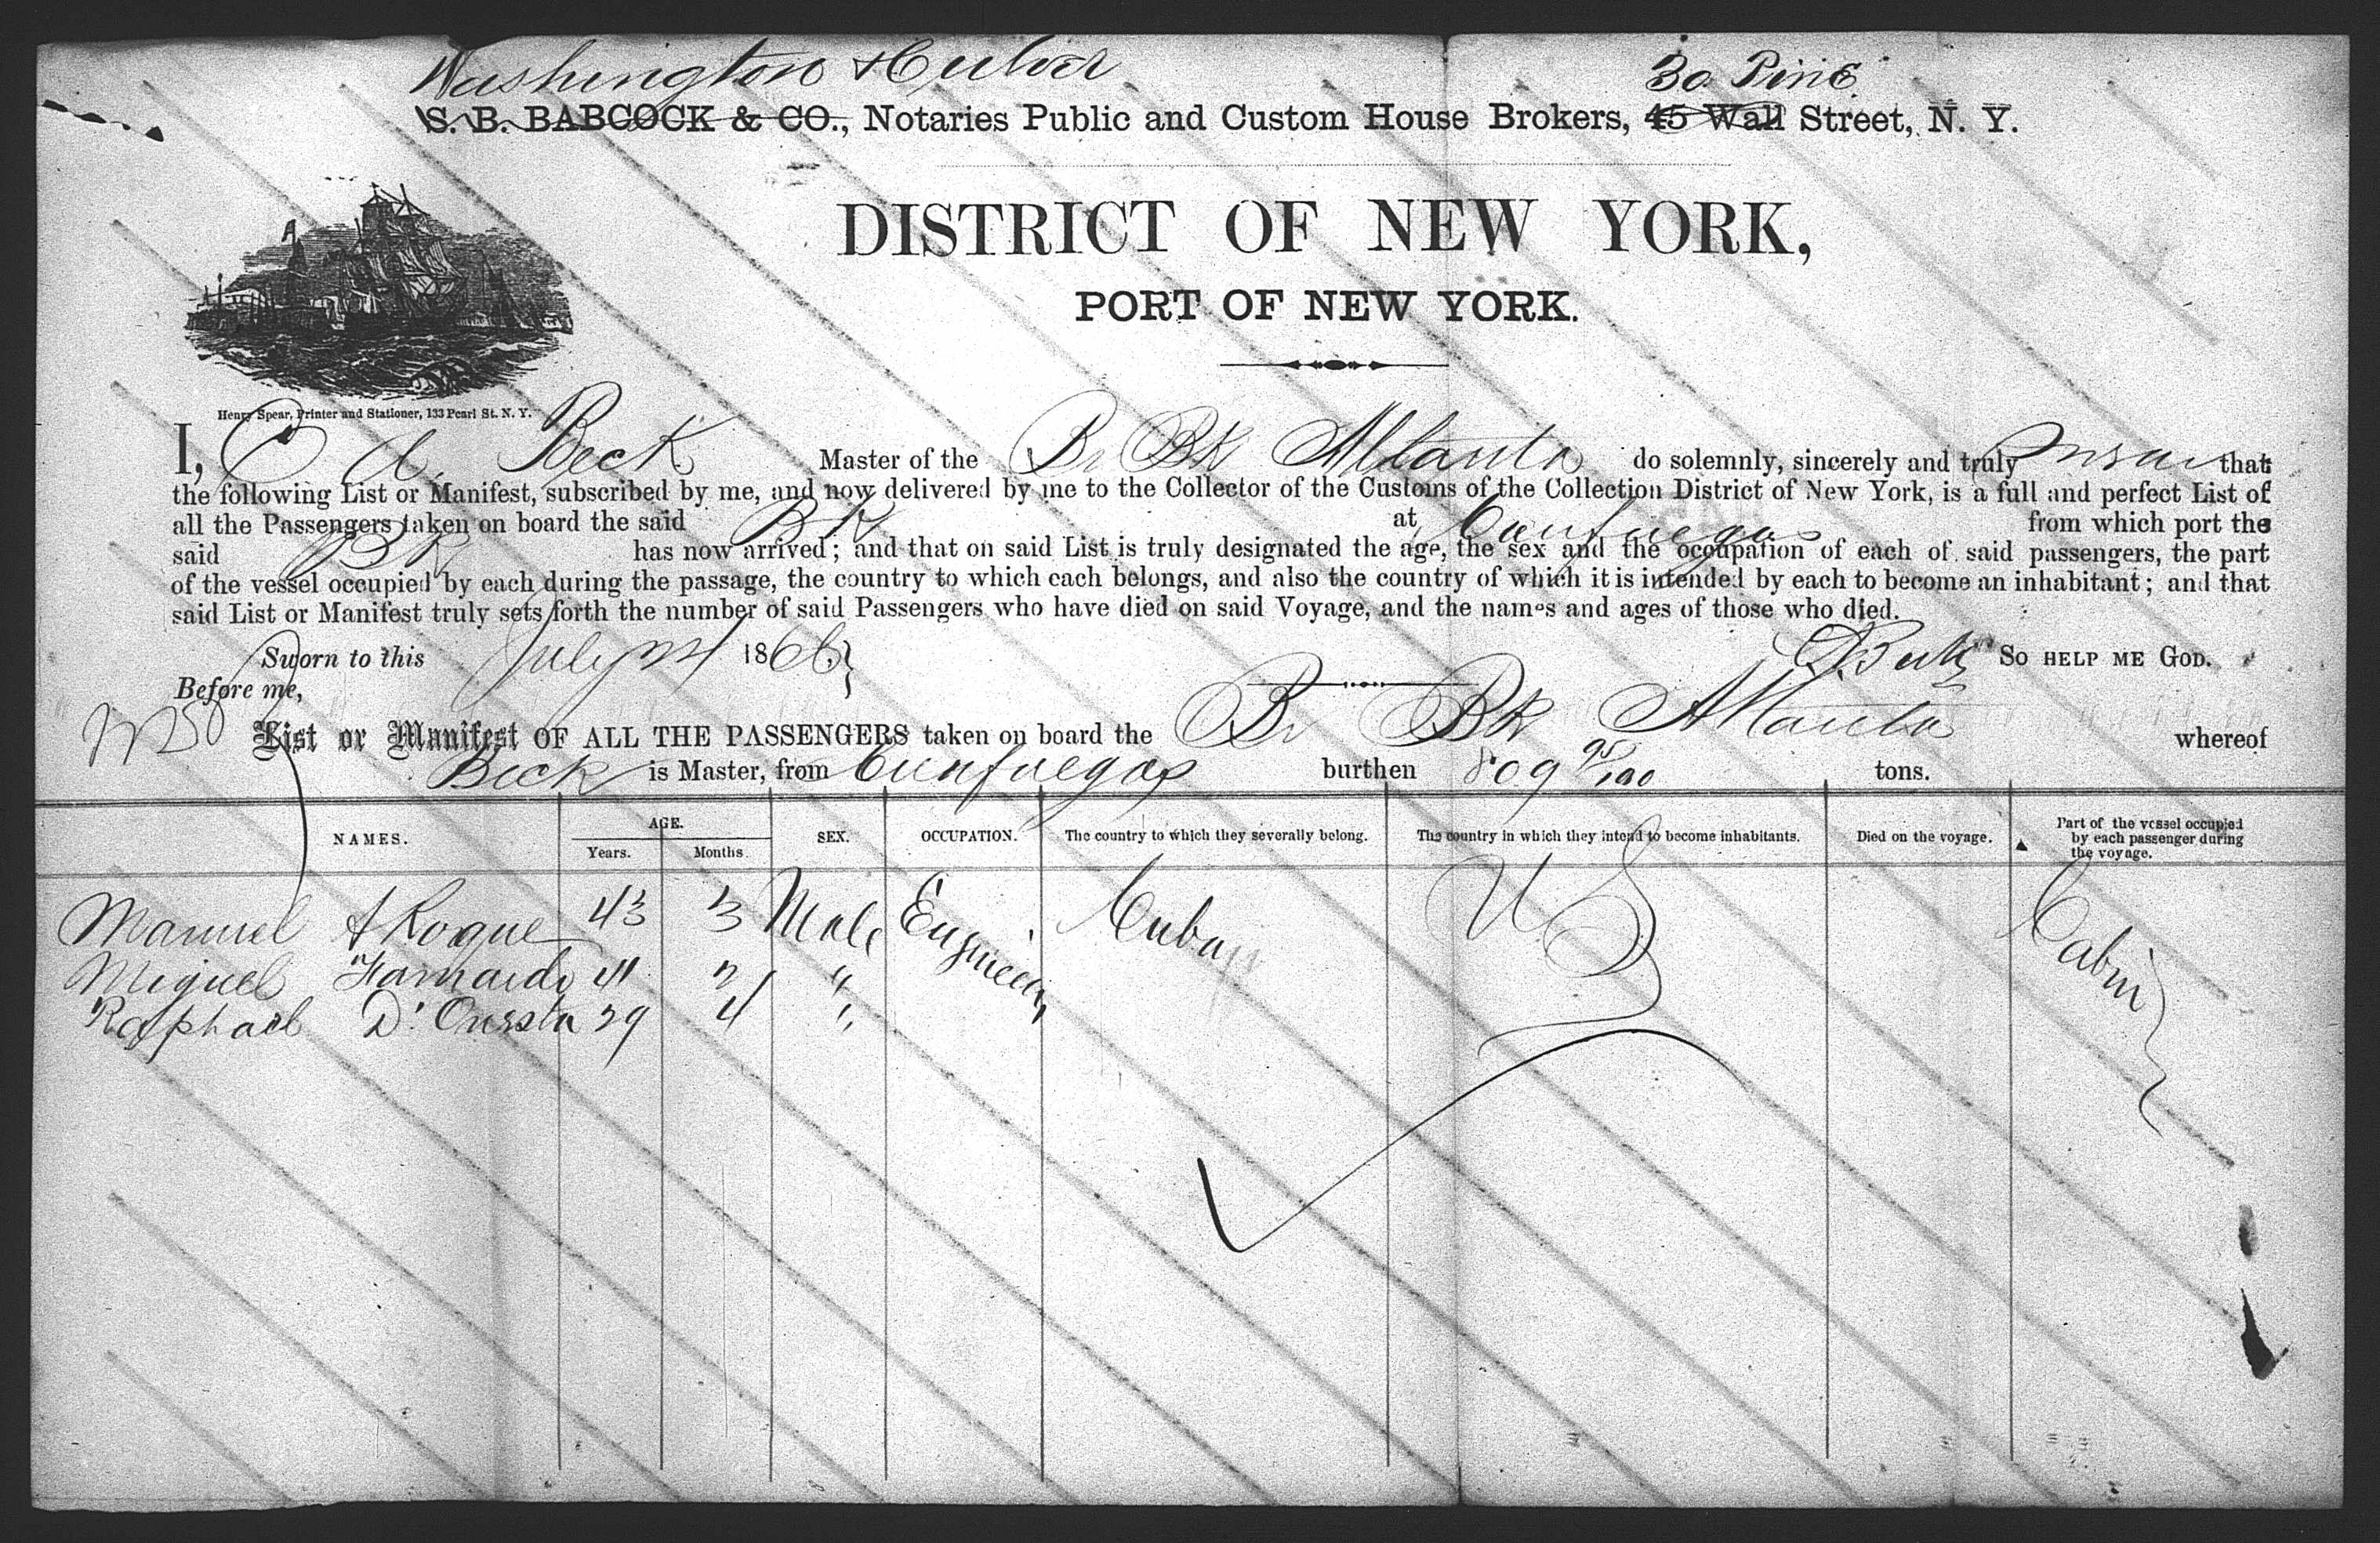 Washington & Culver 30 Pine
S. B. BABCOCK & CO., Notaries Public and Custom House Brokers, 45 Wall Street, N. Y.
DISTRICT OF NEW YORK,
PORT OF NEW YORK.
Henry Spear, Printer and Stationer, 133 Pearl St. N. Y.
I, C A. Beck Master of the Br Bk Atlanta do solemnly, sincerely and truly swear that
the following List or Manifest, subscribed by me, and now delivered by me to the Collector of the Customs of the Collection District of New York, is a full and perfect List of
all the Passengers taken on board the said Bk at Cienfuegos from which port the
said Bk has now arrived; and that on said List is truly designated the age, the sex and the occupation of each of said passengers, the part
of the vessel occupied by each during the passage, the country to which each belongs, and also the country of which it is intended by each to become an inhabitant; and that
said List or Manifest truly sets forth the number of said Passengers who have died on said Voyage, and the names and ages of those who died.
Sworn to this July 1866 So HELP ME GOD.
Before me,
List or Manifest OF ALL THE PASSENGERS taken on board the Br Bk Atlanta whereof
Beck is Master, from Cienfuegos burthen 809 95/100 tons.
NAMES. AGE. Years. Months. SEX. OCCUPATION. The country to which they severally belong. The country in which they intend to become inhabitants. Died on the voyage. Part of the vessel occupied by each passenger during the voyage.
Manuel A Roque 43 3 Male Engineer Cuba US Cabin
Miguel 41 2 "
Raphael D' 29 4 "